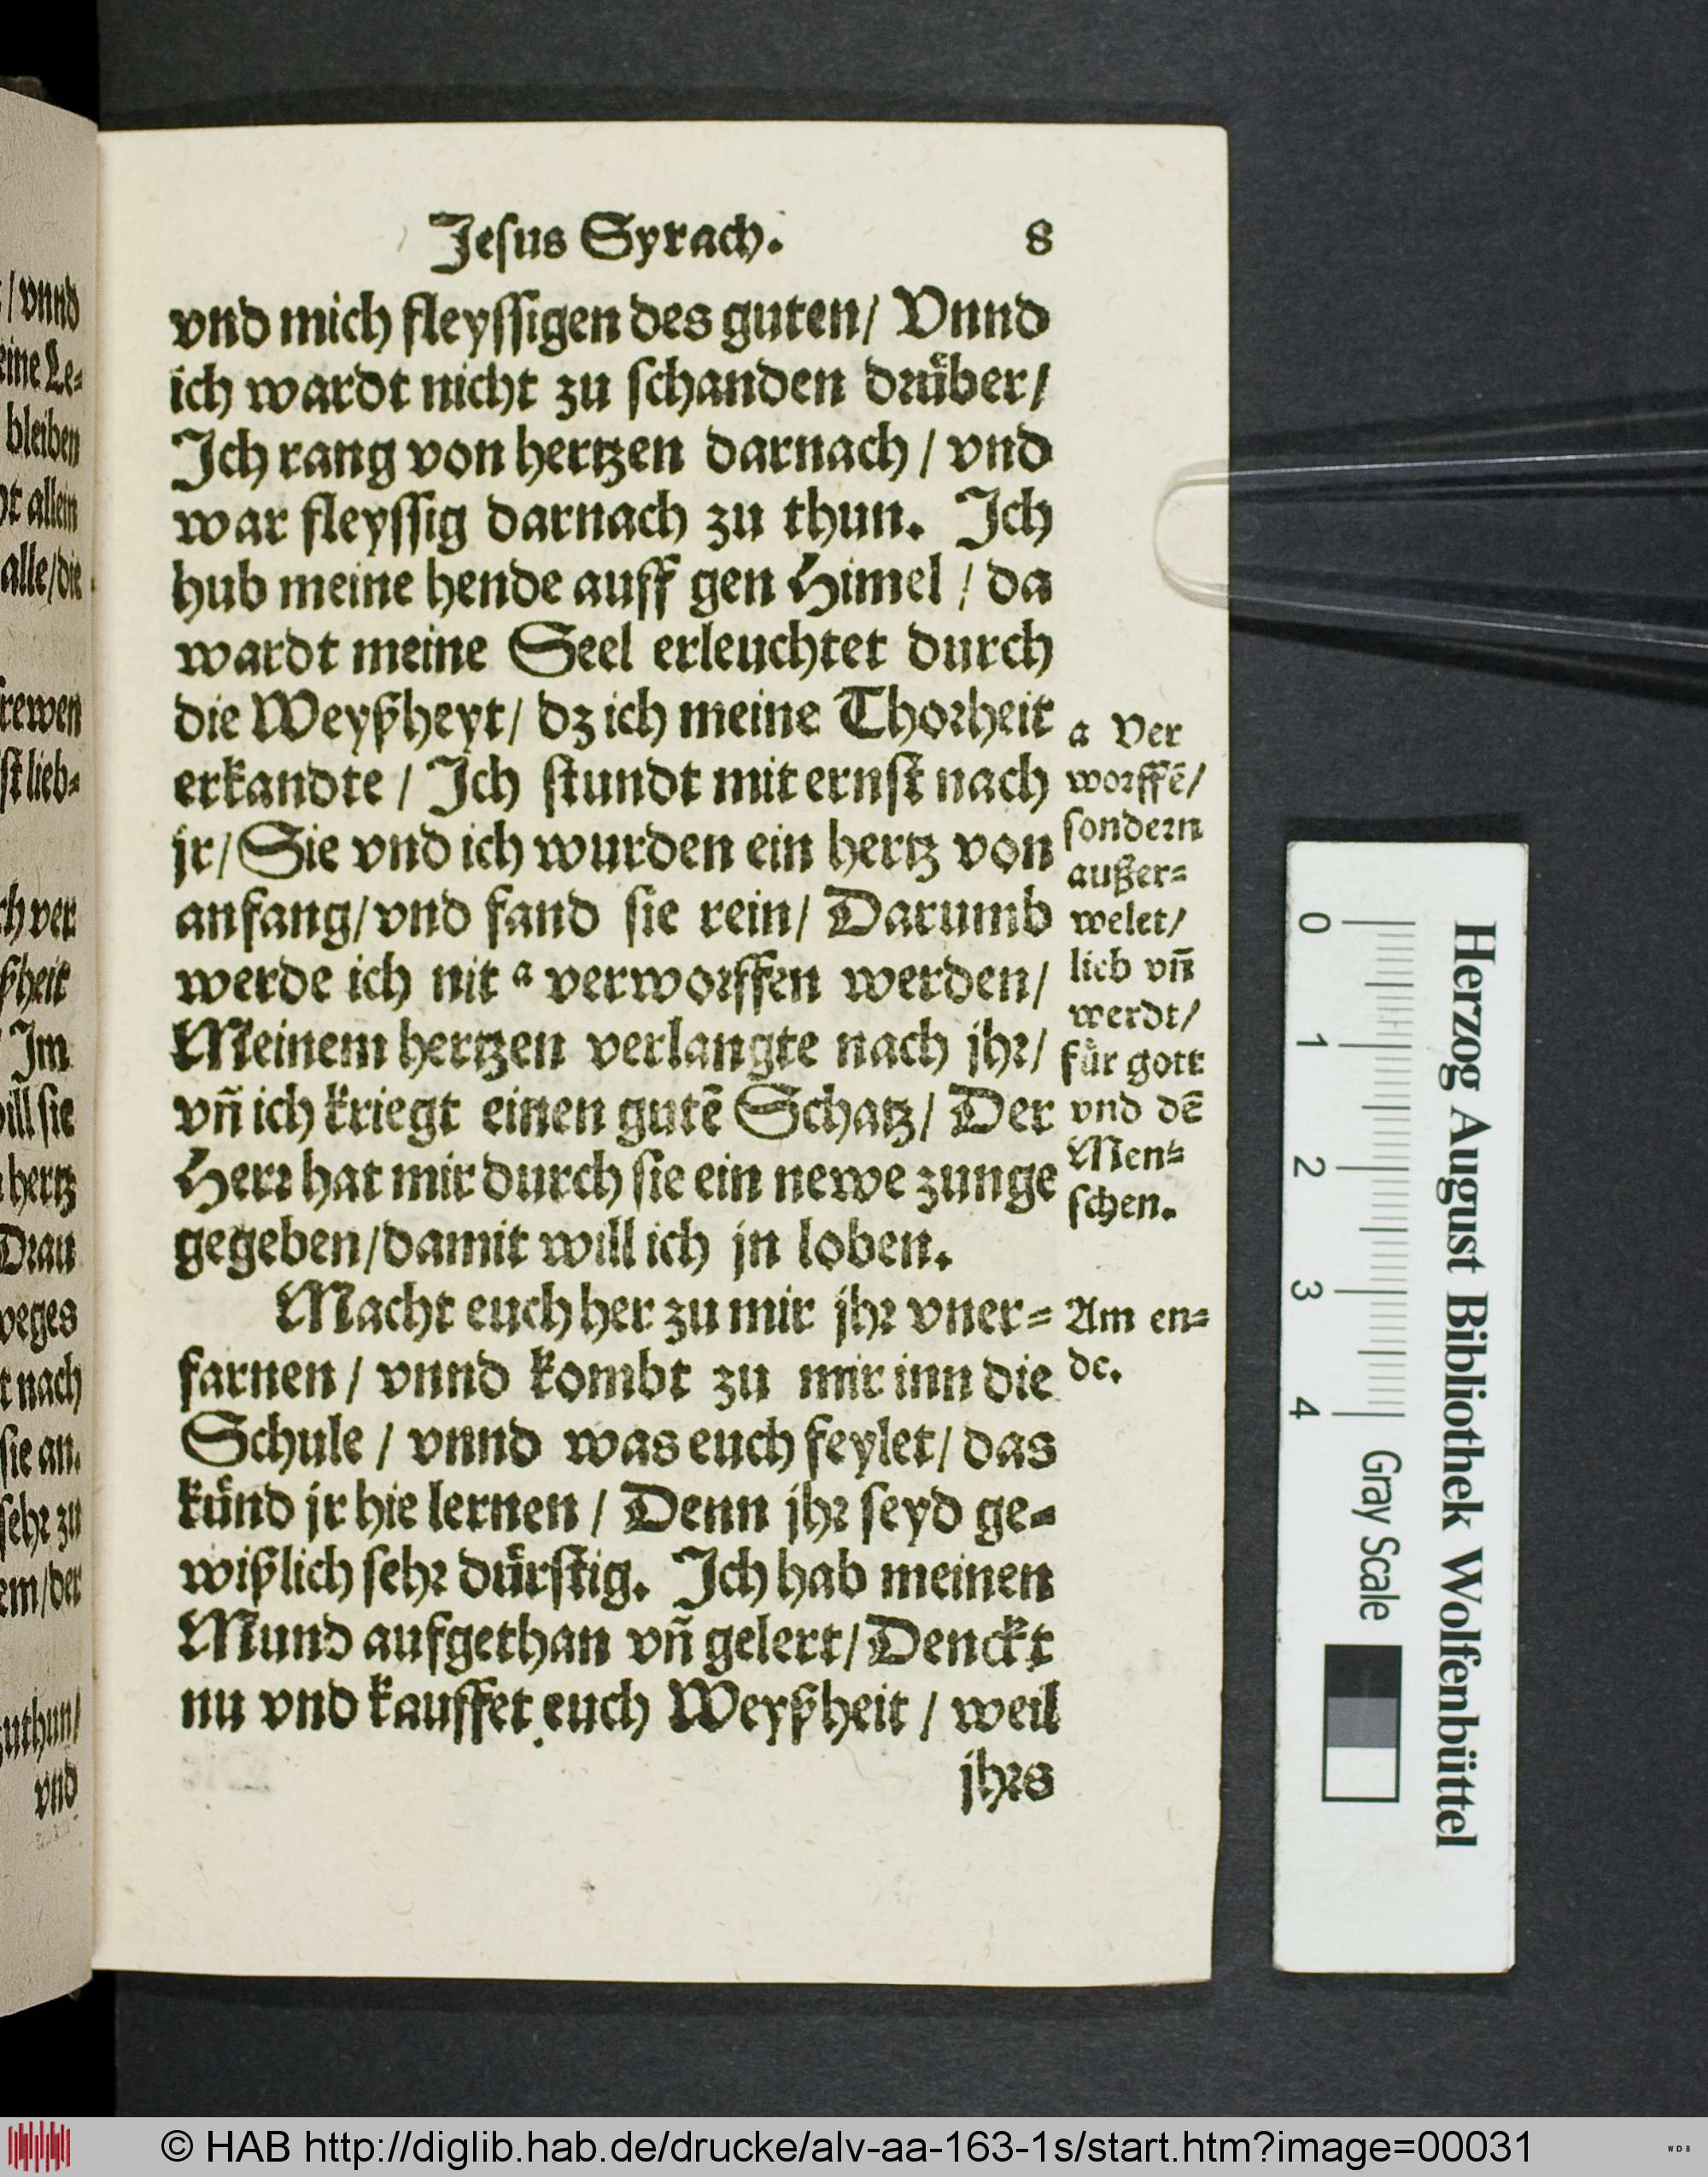 Jesus Syrach. 8
vnd mich fleyssigen des guten/ Vnnd
ich wardt nicht zu schanden drüber/
Ich rang von hertzen darnach / vnd
war fleyssig darnach zu thun. Ich
hub meine hende auff gen Himel / da
wardt meine Seel erleuchtet durch
die Weyßheyt/ dz ich meine Thorheit
erkandte / Ich stundt mit ernst nach
jr/ Sie vnd ich wurden ein hertz von
anfang/ vnd fand sie rein/ Darumb
werde ich nit a verworffen werden/
Meinem hertzen verlangte nach jhr/
vñ ich kriegt einen gutē Schatz/ Der
Herr hat mir durch sie ein newe zunge
gegeben/damit will ich jn loben.
Macht euch her zu mir jhr vner=
farnen / vnnd kombt zu mir inn die
Schule / vnnd was euch feylet/ das
künd jr hie lernen / Denn jhr seyd ge=
wißlich sehr dürstig. Ich hab meinen
Mund aufgethan vñ gelert/ Denckt
nu vnd kauffet euch Weyßheit / weil
jhrs
a Ver
worffē/
sondern
außer=
welet/
lieb vñ
werdt/
für gott
vnd dē
Men=
schen.
Am en=
de.
/ vnnd
eine Le=
bleiben
dt allein
alle/die
frewen
st lieb=
ch ver
ßheit
Im
will sie
hertz
Drau
weges
t nach
sie an.
sehr zu
em/der
zuthun/
vnd
0 1 2 3 4
Gray Scale
Herzog August Bibliothek Wolfenbüttel
© HAB http://diglib.hab.de/drucke/alv-aa-163-1s/start.htm?image=00031
WDB